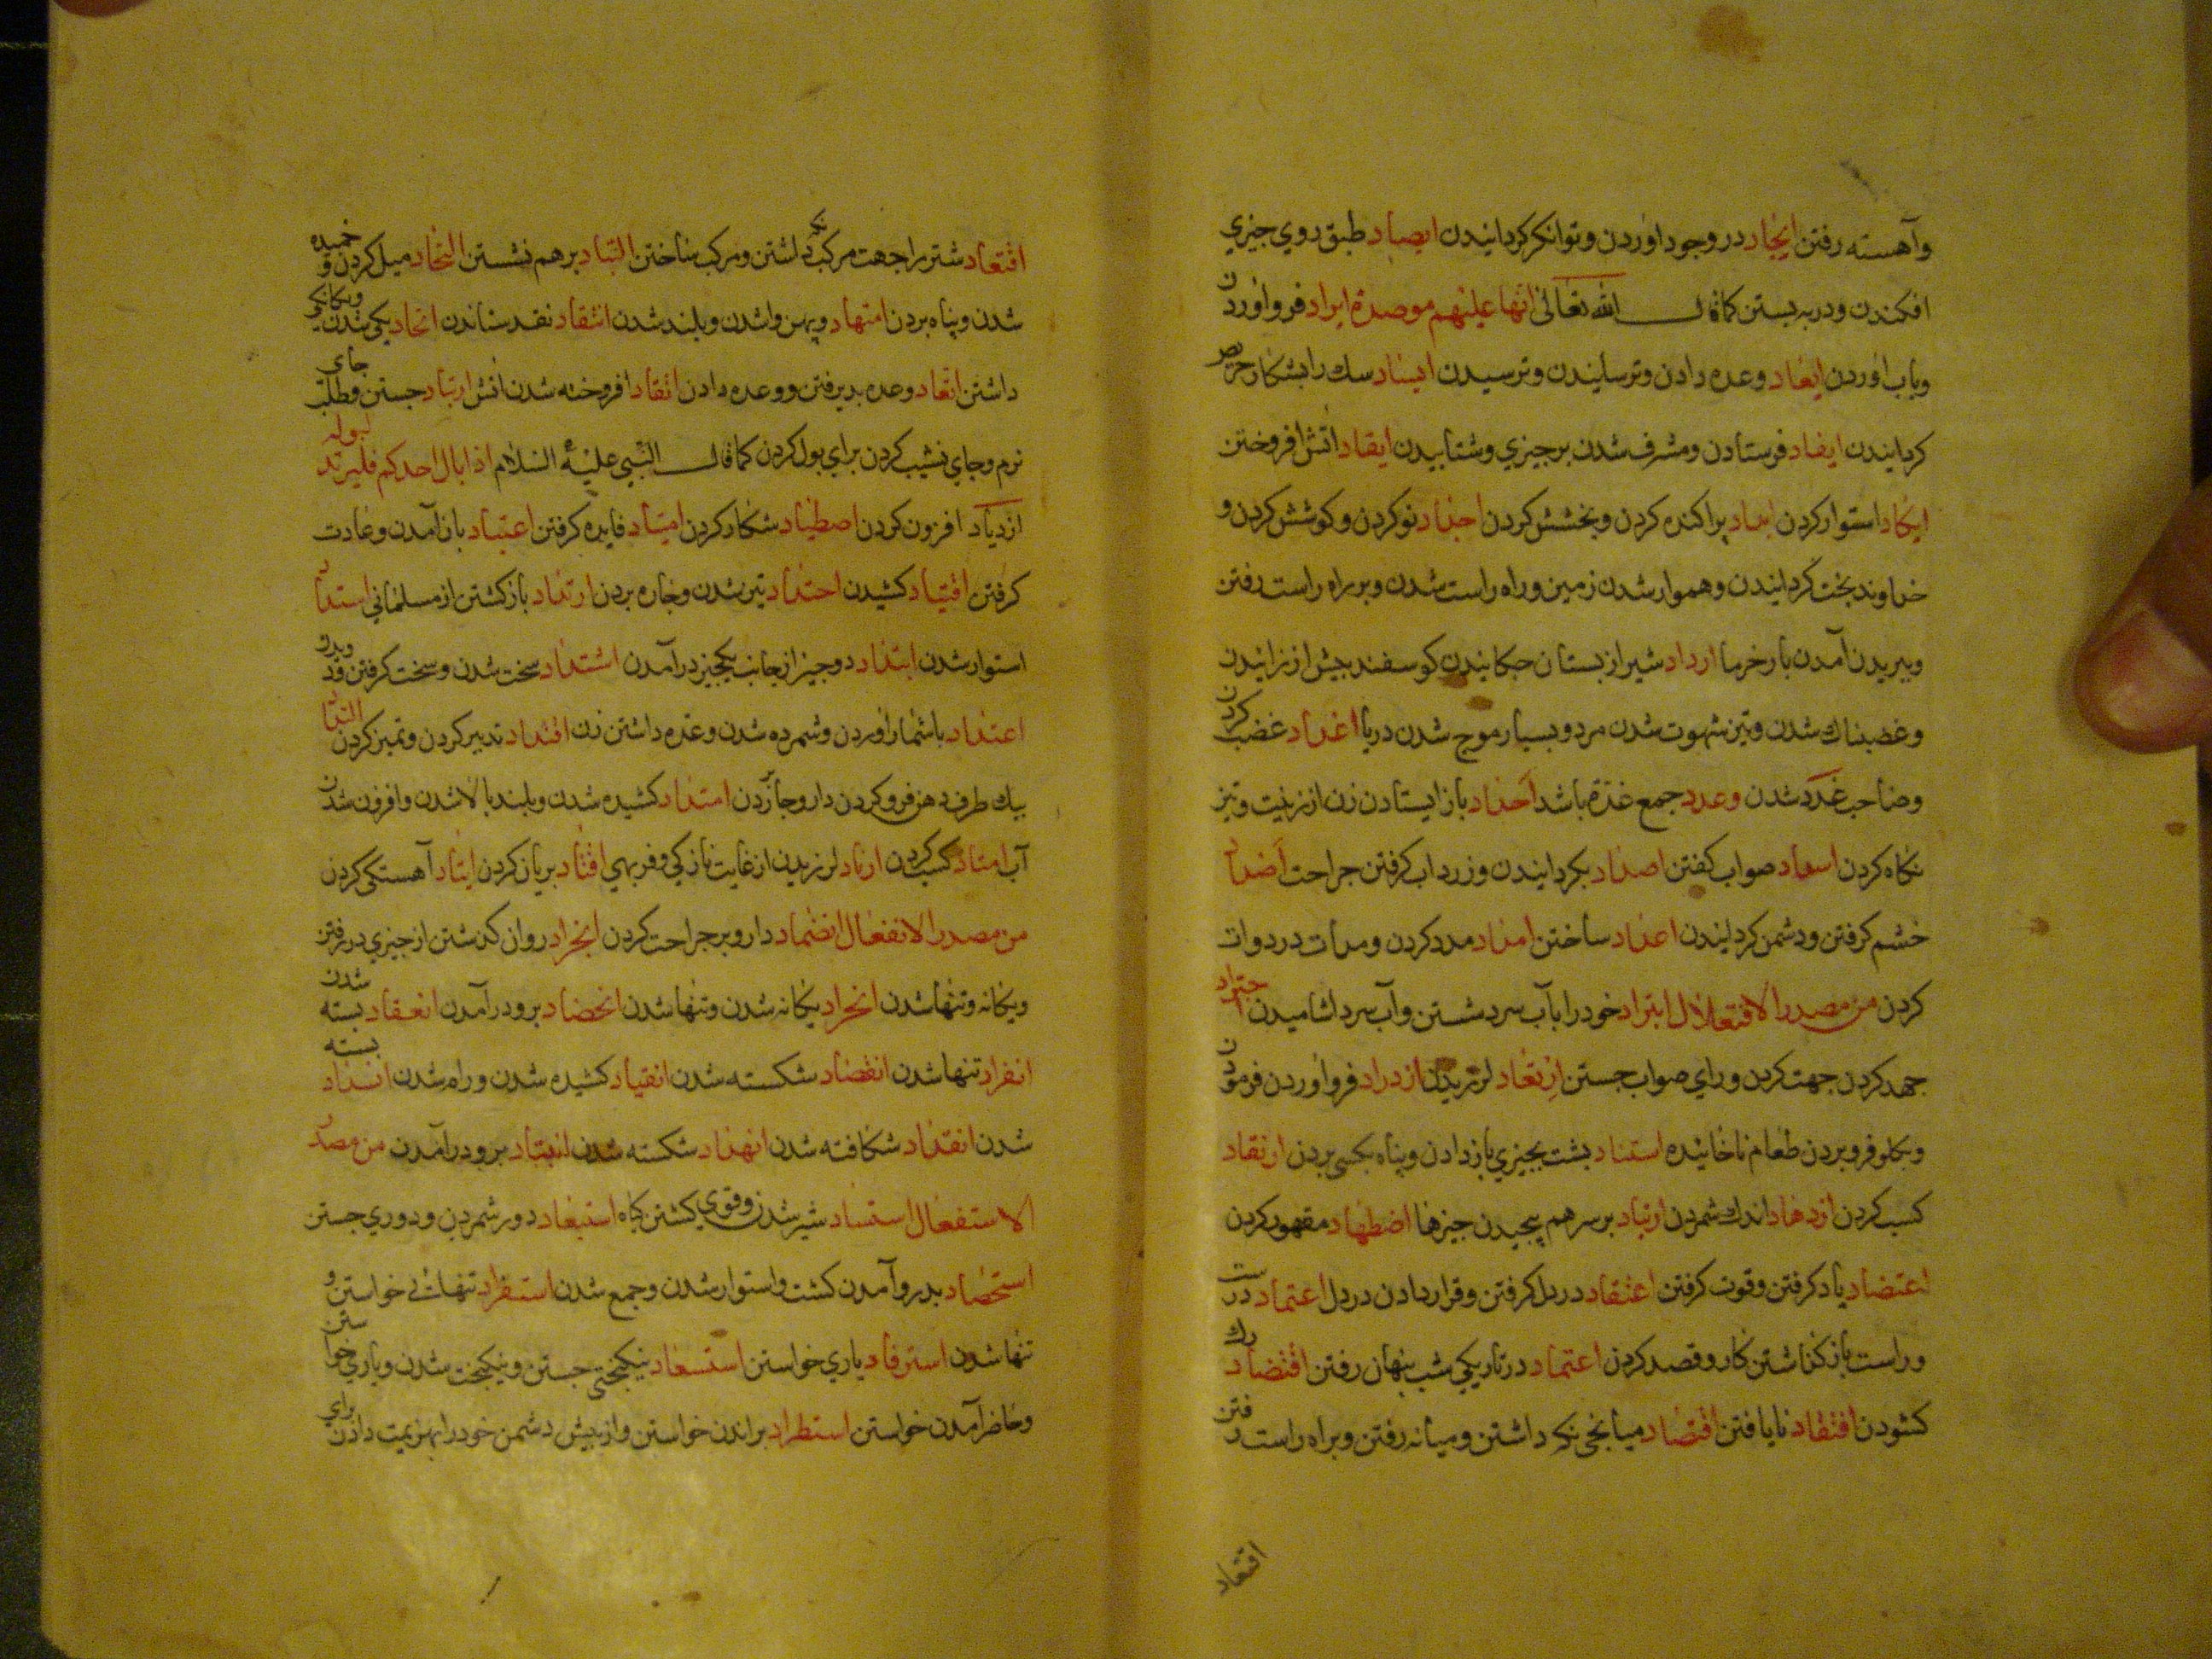 وآهسته رفتن ايجاد در وجود اوردن و توانكر كردانيدن ايصاد طبق روي جيزي
افكندن و در به بستن كما قال الله تعالى انها عليهم موصدة ايراد فرو اوردن
و باب اوردن ايعاد وعده دادن و ترسانيدن و ترسيدن ايساد سك را بشكار حريص
كردانيدن ايفاد فرستادن و مشرف شدن بر جيزي و شتابيدن ايقاد اتش افروختن
ايكاد استوار كردن ابداد پراكنده كردن و بخشش كردن اجداد نو كردن و كوشش كردن و
خداوند بخت كردانيدن و هموار شدن زمين و راه راست شدن و بر راه راست رفتن
و ببريدن آمدن بار خرما ارداد شير از بستان جكانيدن كوسفند بيش از زانيدن
و غضبناك شدن و تيز شهوت شدن مرد و بسيار موج شدن دريا اغداد غضب كردن
و صاحب غدد شدن و غدد جمع غدة باشد احداد باز ايستادن زن از زينت و تيز
نكاه كردن اسداد صواب كفتن اصداد بكردانيدن و زرداب كرفتن جراحت اضداد
خشم كرفتن و دشمن كردانيدن اعداد ساختن امداد مدد كردن و مداد در دوات
كردن من مصدر الافتعلال ابتراد خود را بآب سرد شستن و آب سرد اشاميدن اجتهاد
جهد كردن جهت كردن و راي صواب جستن ارتعاد لرزيدن ازدراد فرو اوردن فرمودن
و بكلو فرو بردن طعام ناخائيده استناد بشت بجيزي باز دادن و پناه بكسى بردن ارتفاد
كسب كردن ازدهاد اندك شمردن ارتباد بر سر هم پيجيدن جيزها اضطهاد مقهور كردن
اعتضاد ياد كرفتن و قوت كرفتن اعتقاد در دل كرفتن و قرار دادن در دل اعتماد درست
و راست باز كذاشتن كار و قصد كردن اعتماد در تاريكي شب پنهان رفتن افتصاد رك
كشودن افتقاد نايافتن اقتصاد ميانجى نكه داشتن و ميانه رفتن و براه راست رفتن
اقتعاد
اقتعاد شتر را جهت مركب نكه داشتن و مركب ساختن التباد بر هم نشستن التحاد ميل كردن و خميده
شدن و پناه بردن امتهاد و پهن وا شدن و بلند شدن انتقاد نقد ستاندن اتحاد يكي شدن و يكانكي
داشتن اتعاد وعده بديرفتن و وعده دادن اتقاد افروخته شدن اتش ارتياد جستن و طلب جاى
نرم و جاي نشيب كردن براي بول كردن كما قال النبي عليه السلام اذا بال احدكم فليرتد لبوله
ازدياد افزون كردن اصطياد شكار كردن امتياد فايده كرفتن اعتياد باز آمدن و عادت
كرفتن اقتياد كشيدن احتداد تيز شدن و جاره بردن ارتداد باز كشتن از مسلماني استداد
استوار شدن ابتداد دو جيز از جانب يكجيز در آمدن اشتداد سخت شدن و سخت كرفتن
اعتداد باشمار اوردن و شمرده شدن و عده داشتن زن اقتداد تدبير كردن و تميز كردن التداد
بيك طرف دهن فرو كردن دارو امتداد كشيده شدن و بلند بالا شدن و افزون شدن
آب امتاد كسب كردن ارتاد لرزيدن از غايت نازكي و فربهي افتاد بريان كردن ايتاد آهستكى كردن
من مصدر الانفعال انضماد دارو بر جراحت كردن انجراد روان كذشتن از جيزي در رفتن
و يكانه و تنها شدن انحراد يكانه شدن و تنها شدن انخضاد برو در آمدن انعقاد بسته شدن
انفراد تنها شدن انقضاد شكسته شدن انقياد كشيده شدن و رام شدن انسداد بسته
شدن انقداد شكافته شدن انهداد شكسته شدن برو در آمدن من مصدر
الاستفعال استساد شير شدن و قوي كشتن كياه استبعاد دور شمردن و دوري جستن
استحصاد بدرو آمدن كشت و استوار شدن و جمع شدن استفراد تنهائى خواستن و
تنها شدن استرفاد ياري خواستن استسعاد نيكبختى جستن و نيكبخت شدن و ياري خواستن
و حاضر آمدن خواستن استطراد براندن خواستن و از پيش دشمن خود را بهزيمت دادن براى